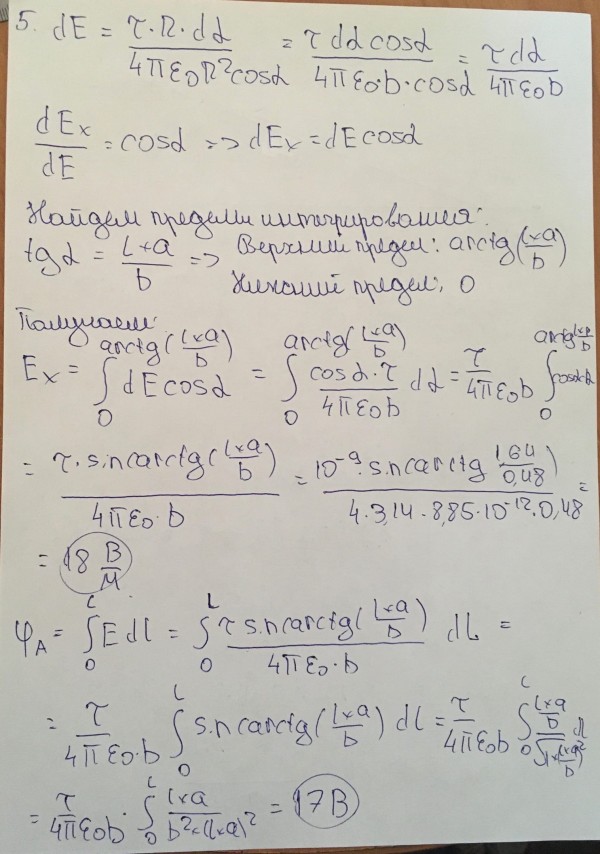 5. dE = τ·r·dα / 4πε₀r²cosα = τ dα cosα / 4πε₀·b·cosα = τ dα / 4πε₀b
dEx / dE = cosα => dEx = dE cosα
Найдем пределы интегрирования:
tgα = (L+a) / b => Верхний предел: arctg((L+a)/b)
Нижний предел: 0
Получаем:
Ex = ∫₀^{arctg((L+a)/b)} dE cosα = ∫₀^{arctg((L+a)/b)} (cosα·τ / 4πε₀b) dα = τ / 4πε₀b ∫₀^{arctg((L+a)/b)} cosα dα
= τ·sin(arctg((L+a)/b)) / 4πε₀·b = 10⁻⁹·sin(arctg(1,64/0,48)) / 4·3,14·8,85·10⁻¹²·0,48 =
= 18 В/м
φA = ∫₀^L E dl = ∫₀^L τ sin(arctg((L+a)/b)) / 4πε₀·b dL =
= τ / 4πε₀·b ∫₀^L sin(arctg((L+a)/b)) dl = τ / 4πε₀b ∫₀^L ((L+a)/b) / √(1+((L+a)/b)²) dl
= τ / 4πε₀b · ∫₀^L (L+a) / b²+(L+a)² = 17 В